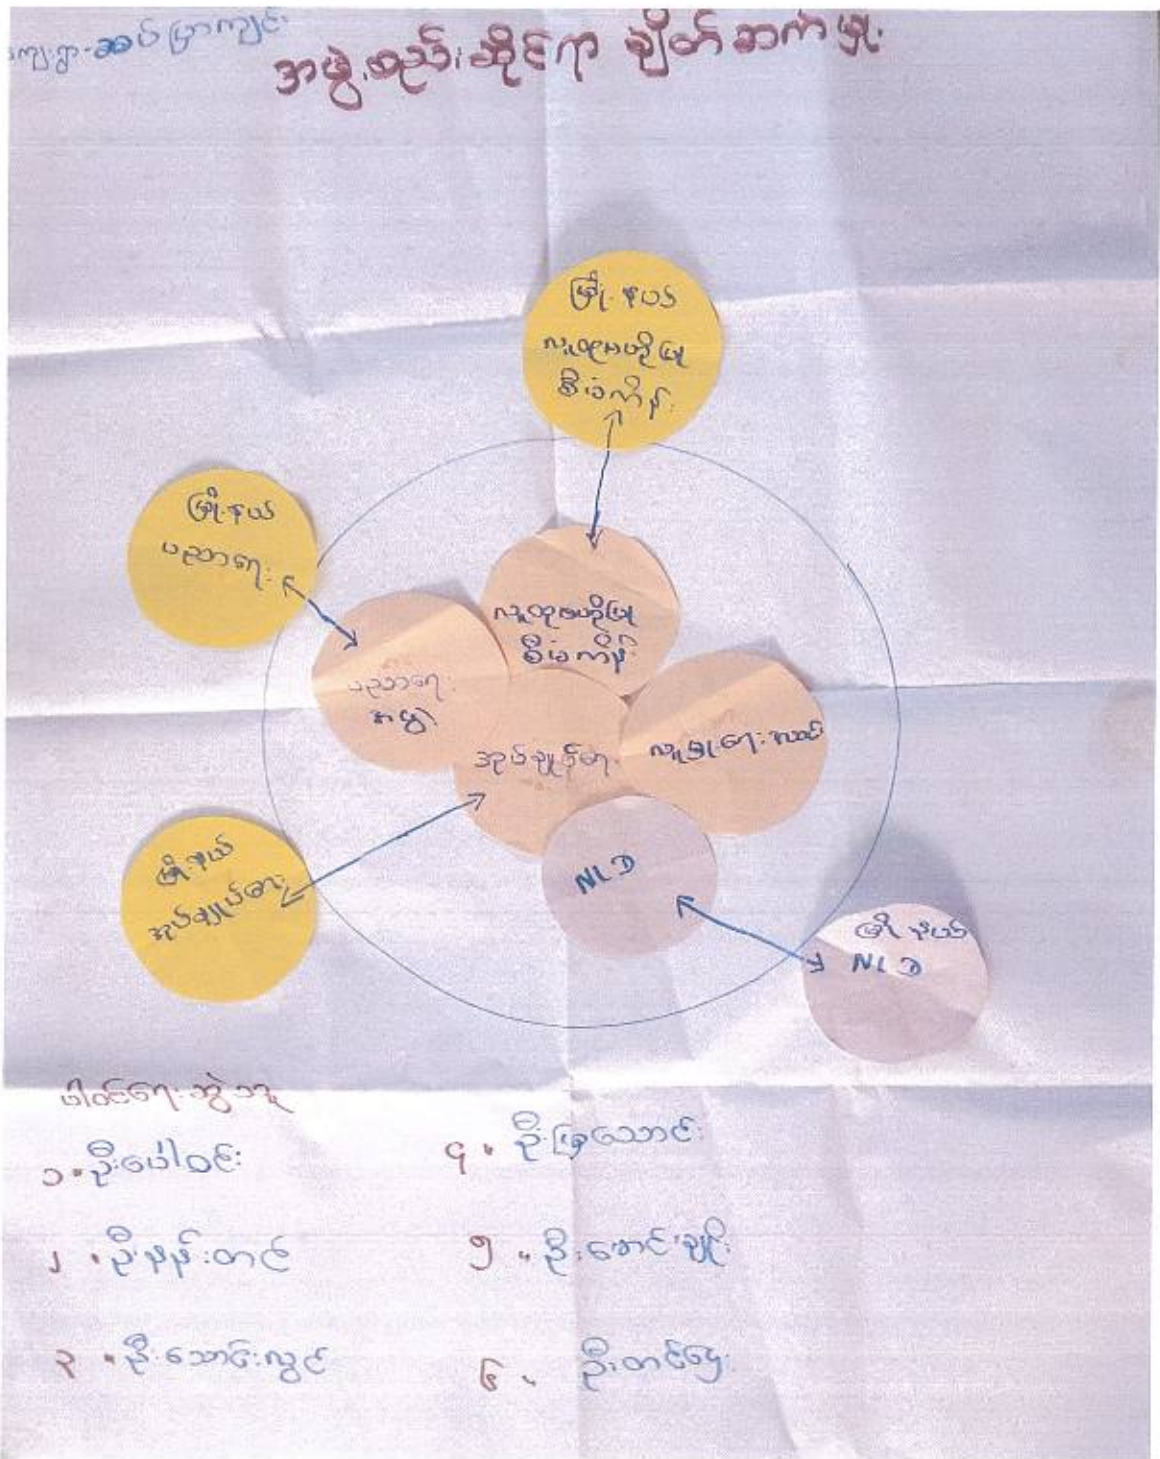 ကျေးရွာ - ဆပ်ပြာကျင်း
အဖွဲ့စည်းဆိုင်ရာ ချိတ်ဆက်မှု
မြို့နယ်
လူထုဗဟိုပြု
စီမံကိန်း
မြို့နယ်
ပညာရေး
လူထုဗဟိုပြု
စီမံကိန်း
ပညာရေး
အဖွဲ့
အုပ်ချုပ်ရေး
လူမှုရေးအသင်း
မြို့နယ်
အုပ်ချုပ်ရေး
NLD
မြို့နယ်
NLD
ပါဝင်ဆွေးနွေးသူ
၁။ ဦးပေါ်ဝင်း
၂။ ဦးနန်းတင်
၃။ ဦးသောင်းလွင်
၄။ ဦးမြသောင်း
၅။ ဦးအောင်ချို
၆။ ဦးတင်ဌေး